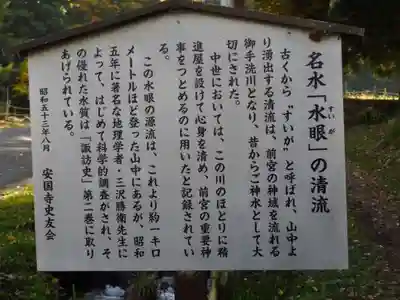 名水「水眼」の清流
すいが
古くから〝すいが〟と呼ばれ、山中よ
り湧出する清流は、前宮の神域を流れる
御手洗川となり、昔からご神水として大
切にされた。
中世においては、この川のほとりに精
進屋を設けて心身を清め、前宮の重要神
事をつとめるのに用いたと記録されてい
る。
この水眼の源流は、これより約一キロ
メートルほど登った山中にあるが、昭和
五年に著名な地理学者・三沢勝衛先生に
よって、はじめて科学的調査がされ、そ
の優れた水質は『諏訪史』第二巻に取り
あげられている。
昭和五十三年八月
安国寺史友会